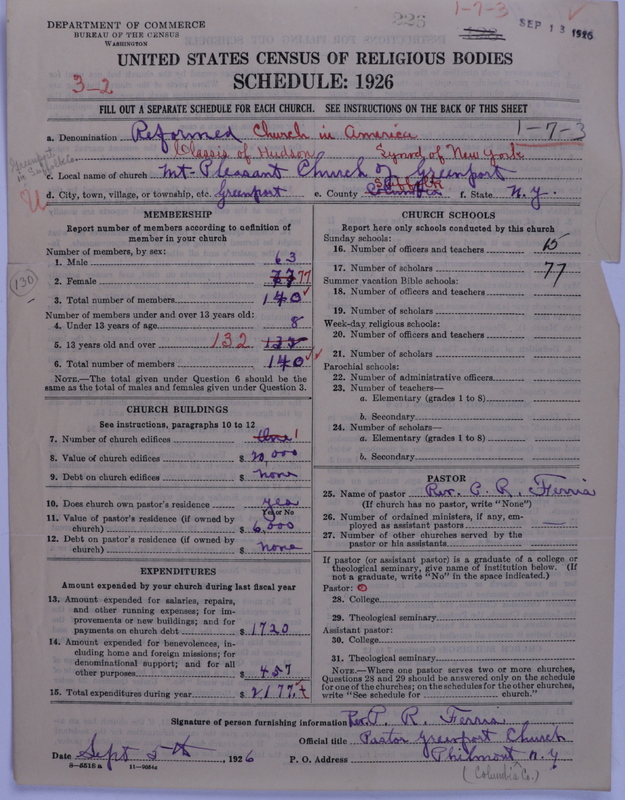 DEPARTMENT OF COMMERCE
BUREAU OF THE CENSUS
WASHINGTON
226
1-7-3
SEP 13 1926
UNITED STATES CENSUS OF RELIGIOUS BODIES
SCHEDULE: 1926
3-2
FILL OUT A SEPARATE SCHEDULE FOR EACH CHURCH. SEE INSTRUCTIONS ON THE BACK OF THIS SHEET
a. Denomination Reformed Church in America 1-7-3
Classis of Hudson Synod of New York
c. Local name of church Mt-Pleasant Church of Greenport
d. City, town, village, or township, etc. Greenport e. County Columbia f. State N.Y.
MEMBERSHIP
Report number of members according to definition of
member in your church
Number of members, by sex:
1. Male 63
2. Female 77 77
3. Total number of members 140
130
Number of members under and over 13 years old:
4. Under 13 years of age 8
5. 13 years old and over 132 132
6. Total number of members 140
NOTE.—The total given under Question 6 should be the
same as the total of males and females given under Question 3.
CHURCH BUILDINGS
See instructions, paragraphs 10 to 12
7. Number of church edifices One 1
8. Value of church edifices $ 20,000
9. Debt on church edifices $ none
10. Does church own pastor's residence yes
Yes or No
11. Value of pastor's residence (if owned by
church) $ 6,000
12. Debt on pastor's residence (if owned by
church) $ none
EXPENDITURES
Amount expended by your church during last fiscal year
13. Amount expended for salaries, repairs,
and other running expenses; for im-
provements or new buildings; and for
payments on church debt $ 1720
14. Amount expended for benevolences, in-
cluding home and foreign missions; for
denominational support; and for all
other purposes $ 457
15. Total expenditures during year $ 2177
CHURCH SCHOOLS
Report here only schools conducted by this church
Sunday schools:
16. Number of officers and teachers 15
17. Number of scholars 77
Summer vacation Bible schools:
18. Number of officers and teachers
19. Number of scholars
Week-day religious schools:
20. Number of officers and teachers
21. Number of scholars
Parochial schools:
22. Number of administrative officers
23. Number of teachers—
a. Elementary (grades 1 to 8)
b. Secondary
24. Number of scholars—
a. Elementary (grades 1 to 8)
b. Secondary
PASTOR
25. Name of pastor Rev. P. R. Ferris
(If church has no pastor, write "None")
26. Number of ordained ministers, if any, em-
ployed as assistant pastors
27. Number of other churches served by the
pastor or his assistants
If pastor (or assistant pastor) is a graduate of a college or
theological seminary, give name of institution below. (If
not a graduate, write "No" in the space indicated.)
Pastor: 0
28. College
29. Theological seminary
Assistant pastor:
30. College
31. Theological seminary
NOTE.—Where one pastor serves two or more churches,
Questions 28 and 29 should be answered only on the schedule
for one of the churches; on the schedules for the other churches,
write "See schedule for church."
Signature of person furnishing information Rev. P. R. Ferris
Official title Pastor Greenport Church
Date Sept 5th, 1926 P. O. Address Philmont N.Y
8-5518 a 11-9054a
(Columbia Co.)